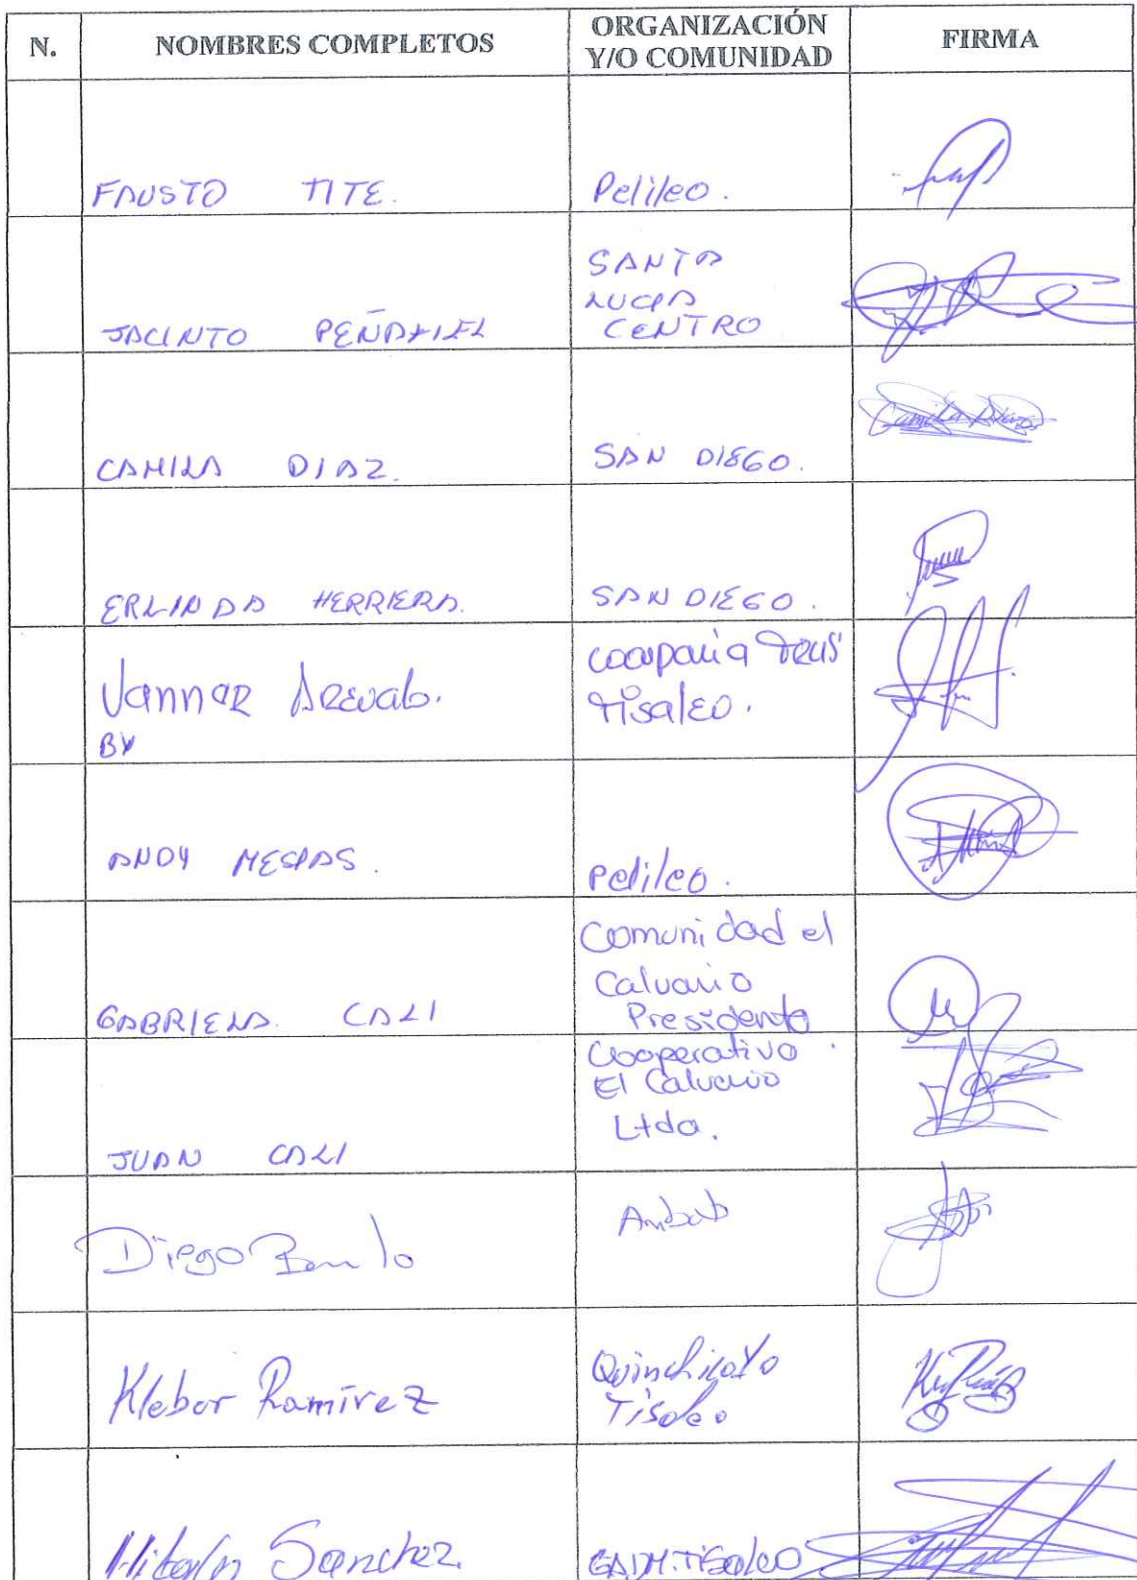 N. NOMBRES COMPLETOS ORGANIZACIÓN Y/O COMUNIDAD FIRMA
FAUSTO TITE. Pelileo.
JACINTO PEÑAFIEL SANTA
LUCIA
CENTRO
CAMILA DIAZ. SAN DIEGO. Camila Diaz
ERLINDA HERRERA. SAN DIEGO.
Vannar Arevalo. compañia
BY Tisaleo.
ANDY MESIAS. Pelileo.
GABRIELA CALI Comunidad el
Calvario
Presidenta
JUAN CALI Cooperativa
El Calvario
Ltda.
Diego Ambato
Klebor Ramírez Quinchicoto
Tisaleo
Sanchez. GADM.Tisaleo